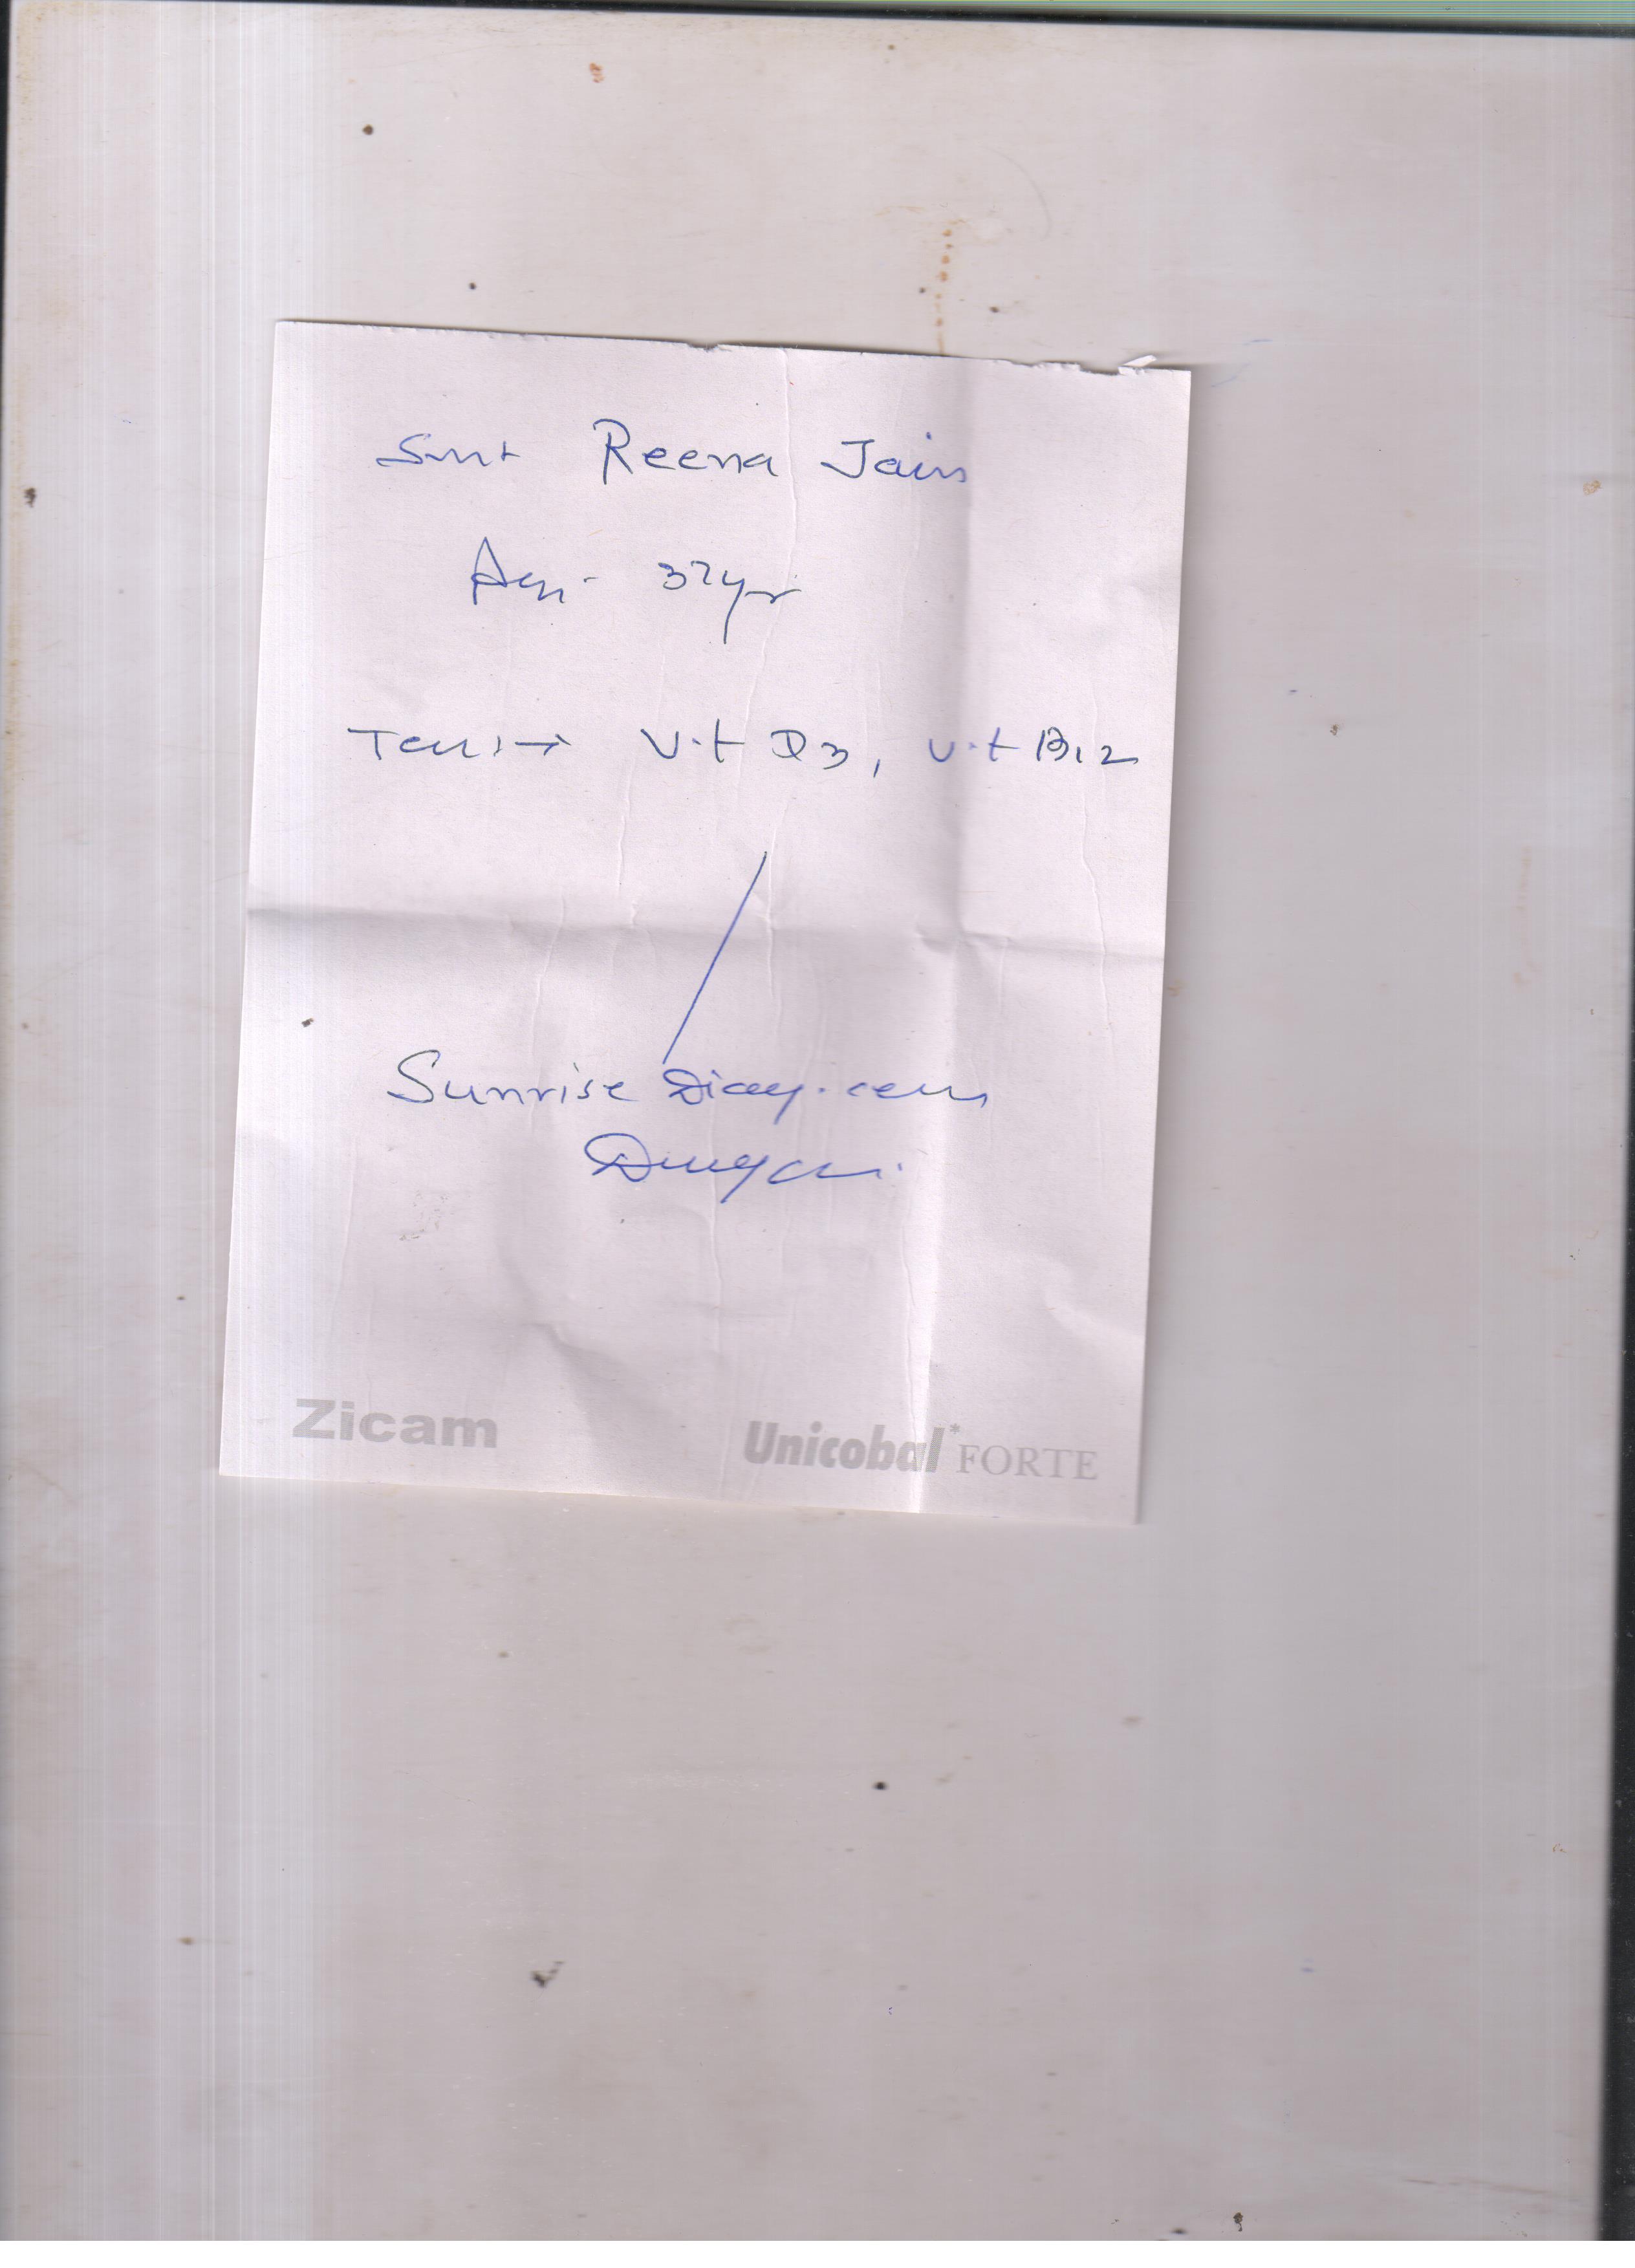 Smt Reena Jain
Age - 37yr
Test → Vit D3, Vit B12
Sunrise Diag. cen
Zicam Unicobal* FORTE